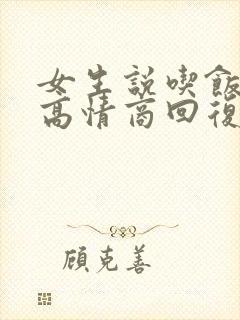 女生説喫飯
高情商回復
顧克善